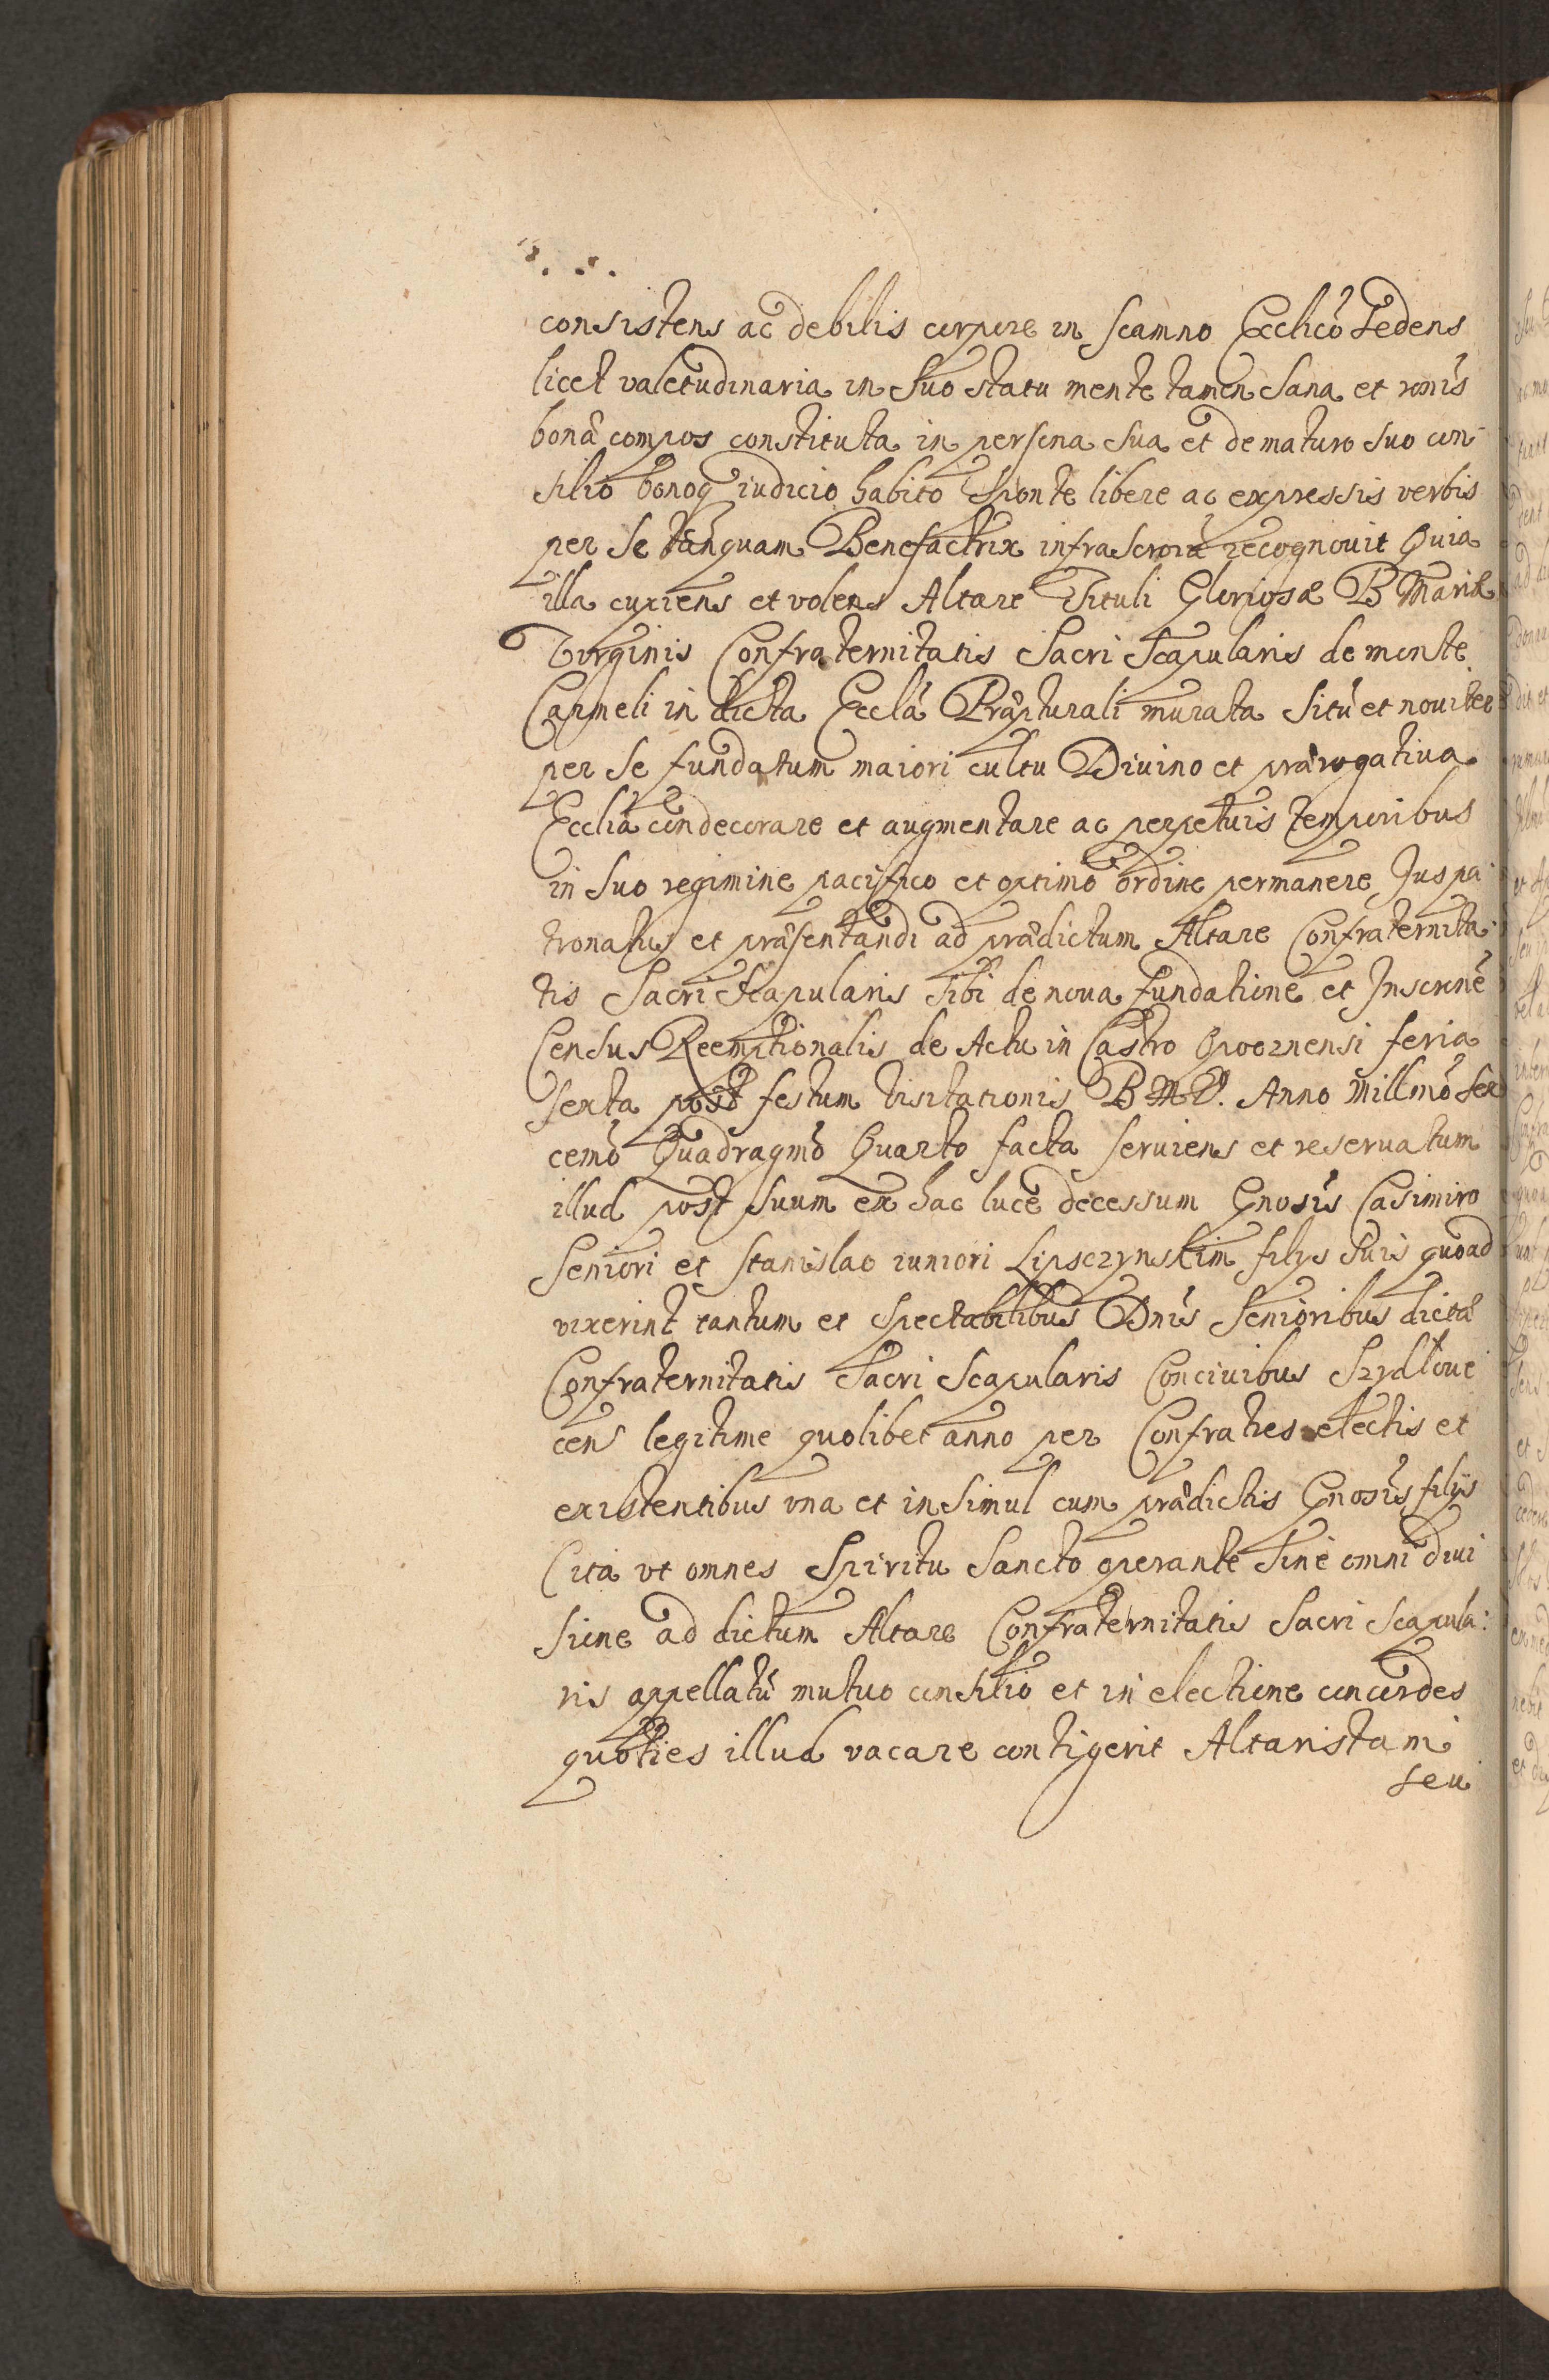 consistens ac debilis corpore in scamno Ecclicō sedens
licet valetudinaria in suo statu mente tamen sana et ronis
bonâ compos constituta in persona sua et de maturo suo con-
silio bonoq iudicio habito sponte libere ac expressis verbis
per se tanquam Benefactrix infrascrōra recognouit Quia
illa cupiens et volens Altare Tituli Gloriosæ B Mariæ
Virginis Confraternitatis Sacri Scapularis de monte
Carmeli in dicta Ecclā Præpturali murata sitū et nouiter
per se fundatum maiori cultu Diuino et prærogatiua
Ecclia condecorare et augmentare ac perpetuis temporibus
in suo regimine pacifico et optimo ordine permanere Juspa-
tronatus et præsentandi ad prædictum Altare Confraternita-
tis Sacri Scapularis sibi de noua fundatione et Inscrone
Census Reemptionalis de Actu in Castro Opocznensi feria
sexta post festum Visitationis B M V. Anno Millmō sex
cemō Quadragmō Quarto facta seruiens et reseruatum
illud post suum ex hac luce decessum Gnosis Casimiro
Seniori et Stanislao iuniori Lipsczynskim filys suis quoad
vixerint tantum et spectabilibus Dnis Senioribus dictæ
Confraternitatis Sacri Scapularis Conciuibus Szydloue
cen legitime quolibet anno per Confratres electis et
existentibus vna et insimul cum prædictis Gnosis filys
(ita vt omnes Spiritu Sancto operante sine omni diui
sione ad dictum Altare Confraternitatis Sacri Scapula:
ris appellatū mutuo consilio et in electione concordes
quoties illud vacare contigerit Altaristam
seu